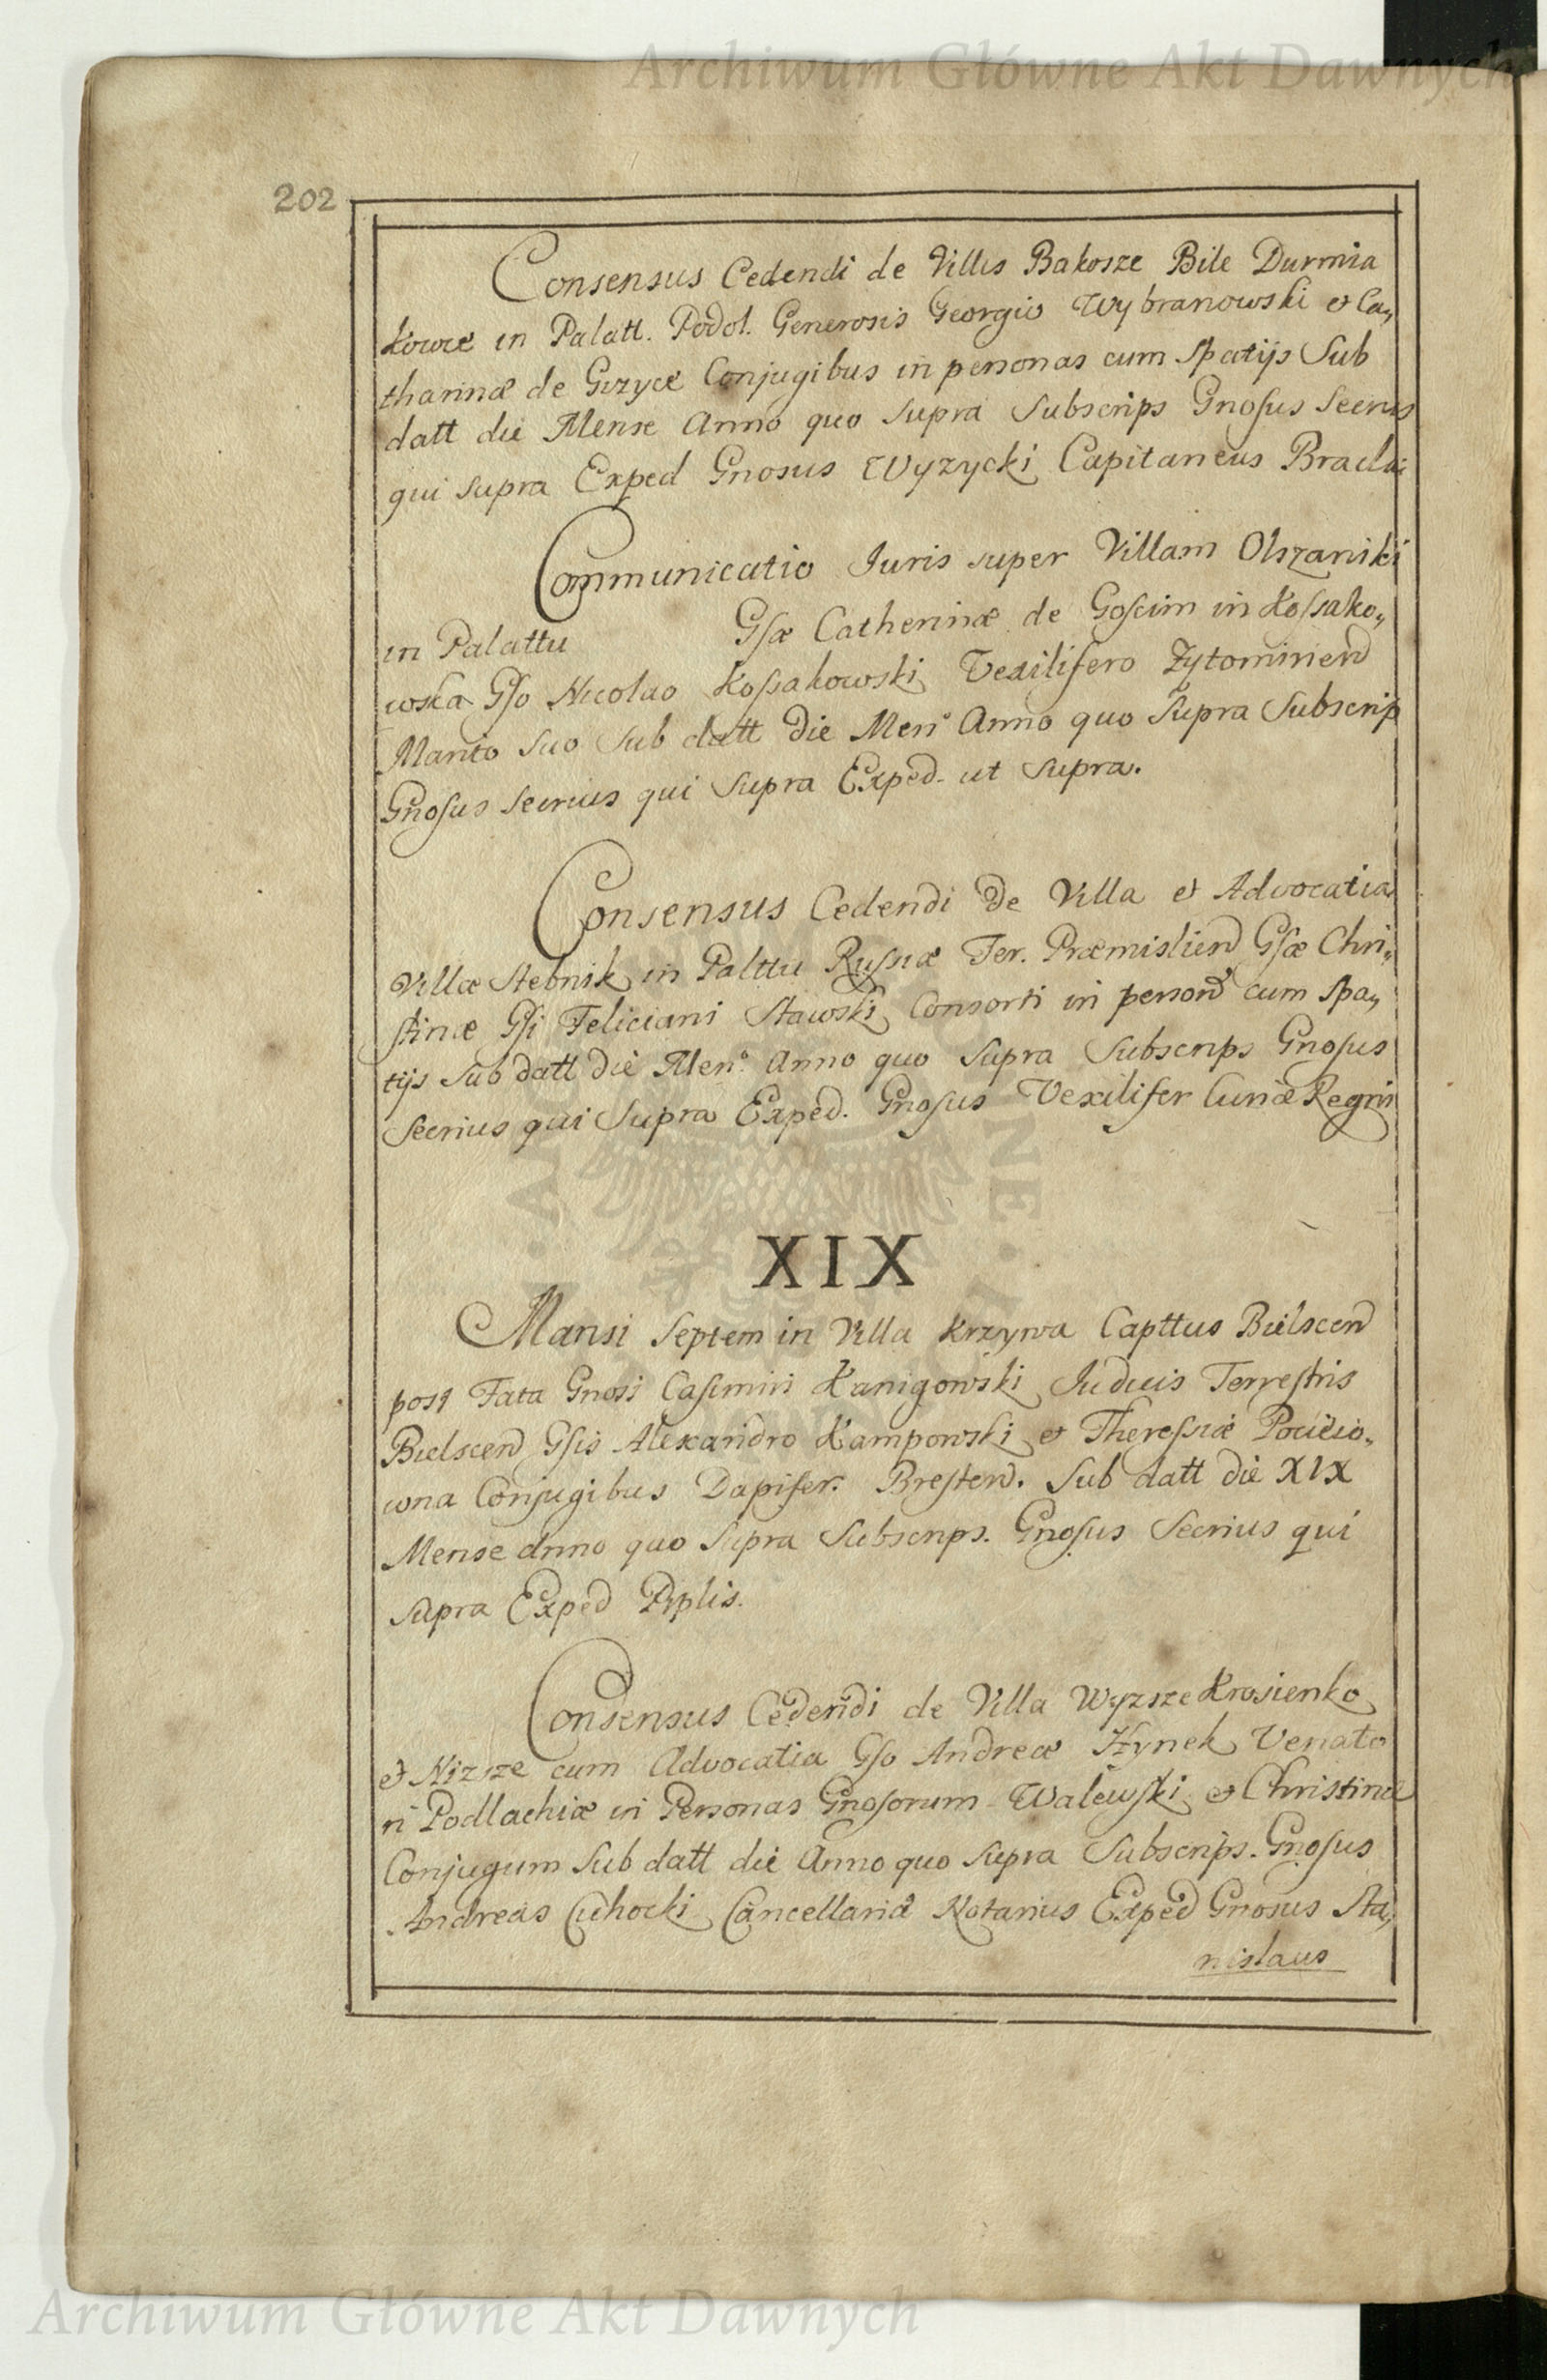 Archiwum Główne Akt Dawnych
202
Consensus Cedendi de Villis Bakosze Bile Durmia
kowce in Palatt. Podol. Generosis Georgio Wybranowski et Ca„
tharinæ de Grzyce Conjugibus in personas cum Spatijs Sub
datt die Mense Anno quo supra Subscrips Gnosus Secrius
qui supra Exped Gnosus Wyzycki Capitaneus Braclai
Communicatio Iuris super Villam Olszaniki
in Palattu Gsæ Catherinæ de Goscim in Kossako„
wska Gso Nicolao Kossakowski Vexilifero Zytomirien
Marito suo Sub datt Die Men. Anno quo Supra Subscrip
Gnosus Secrius qui Supra Exped. ut Supra.
Consensus Cedendi De Villa et Advocatia
Villæ Stebnik in Palttu Russiæ Ter. Præmislien Gsæ Chri„
stinæ Gsi Feliciani Stawski Consorti in person cum Spa„
tijs Sub datt die Men. Anno quo Supra Subscrips Gnosus
Secrius qui Supra Exped. Gnosus Vexilifer Curiæ Regni
XIX
Mansi Septem in Villa Krzywa Capttus Bielscen
post Fata Gnosi Casimiri Kanigowski Iudicis Terrestris
Bielscen Gsis Alexandro Kampowski et Theressiæ Pocieio„
wna Conjugibus Dapifer. Bresten. Sub datt die XIX
Mense Anno quo Supra Subscrips. Gnosus Secrius qui
supra Exped Pplis.
Consensus Cedendi de Villa Wyzsze Krosienko
et Nizsze cum Advocatia Gso Andreæ Hynek Venato
ri Podlachiæ in Personas Gnosorum Walewski et Christinæ
Conjugum Sub datt die Anno quo supra Subscrips. Gnosus
Andreas Cichocki Cancellariæ Notarius Exped Gnosus Sta„
nislaus
Archiwum Główne Akt Dawnych